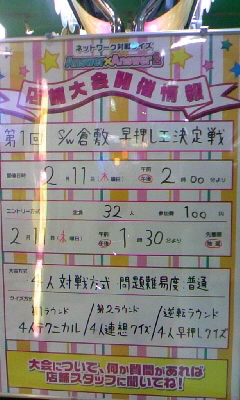 ネットワーク対戦クイズ
Answer×Answer
店舗大会開催情報
第1回 S/W倉敷 早押し王決定戦
開催日時 2月11日(水曜日) 午前 午後 2時00分より
エントリー方式 定員 32人 参加費 100円
2月11日(水曜日) 午前 午後 1時30分より 先着順
大会方式 4人対戦方式 問題難易度・普通
クイズ方式 第1ラウンド / 第2ラウンド / 逆転ラウンド
4人テクニカル / 4人連想クイズ / 4人早押しクイズ
大会について、何か質問があれば
店舗スタッフに聞いてね!